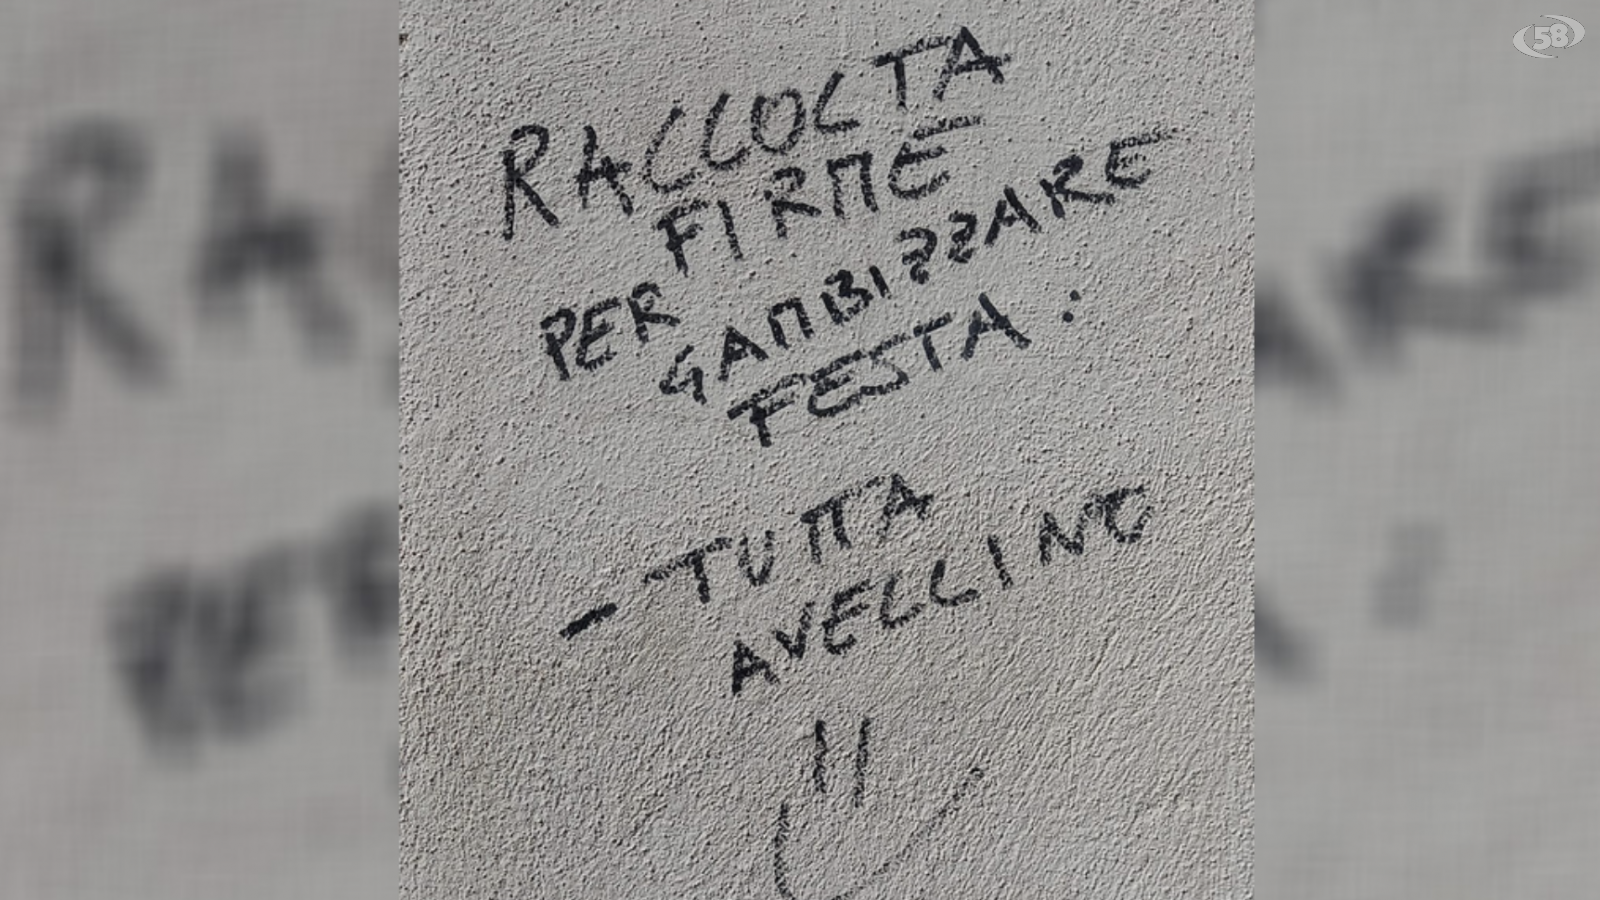 58
RACCOLTA
FIRME
PER
GAMBIZZARE
FESTA:
- TUTTA
AVELLINO